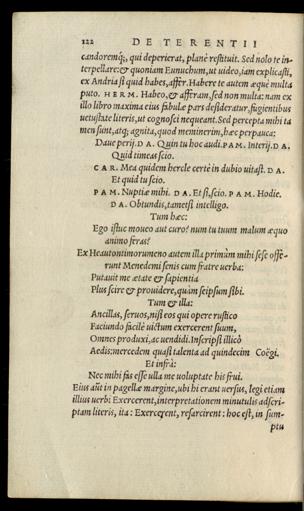 122 DE TERENTII
candoremq́;, qui depericrat, planè restituit. Sed nolo te in-
terpellare: & quoniam Eunuchum, ut uideo, iam explicasti,
ex Andria si quid habes, affer. Habere te autem æquè multa
puto. HERM. Habeo, & afferam, sed non multa: nam ex
illo libro maxima eius fabulæ pars desideratur, fugientibus
uetustate literis, ut cognosci nequeant. Sed percepta mihi ta
men sunt, atq; agnita, quod meminerim, hæc perpauca:
Daue perij. DA. Quin tu hoc audi. PAM. Interij. DA.
Quid timeas scio.
CAR. Mea quidem hercle certè in dubio uita st. DA.
Et quid tu scio.
PAM. Nuptiæ mihi. DA. Et si, scio. PAM. Hodie.
DA. Obtundis, tametsi intelligo.
Tum hæc:
Ego istuc moueo aut curo? num tu tuum malum æquo
animo feras?
Ex Heautontimorumeno autem illa primùm mihi sese offe-
runt Menedemi senis cum fratre uerba:
Putauit me ætate & sapientia
Plus scire & prouidere, quàm seipsum sibi.
Tum & illa:
Ancillas, seruos, nisi eos qui opere rustico
Faciundo facilè uictum exercerent suum,
Omnes produxi, ac uendidi. Inscripsi illicò
Aedis: mercedem quasi talenta ad quindecim Coëgi.
Et infrà:
Nec mihi fas esse ulla me uoluptate his frui.
Eius aũt in pagellæ margine, ubi hi erant uersus, legi etiam
illius uerbi Exercerent, interpretationem minutulis adscri-
ptam literis, ita: Exercerent, resarcirent: hoc est, in sum-
ptu